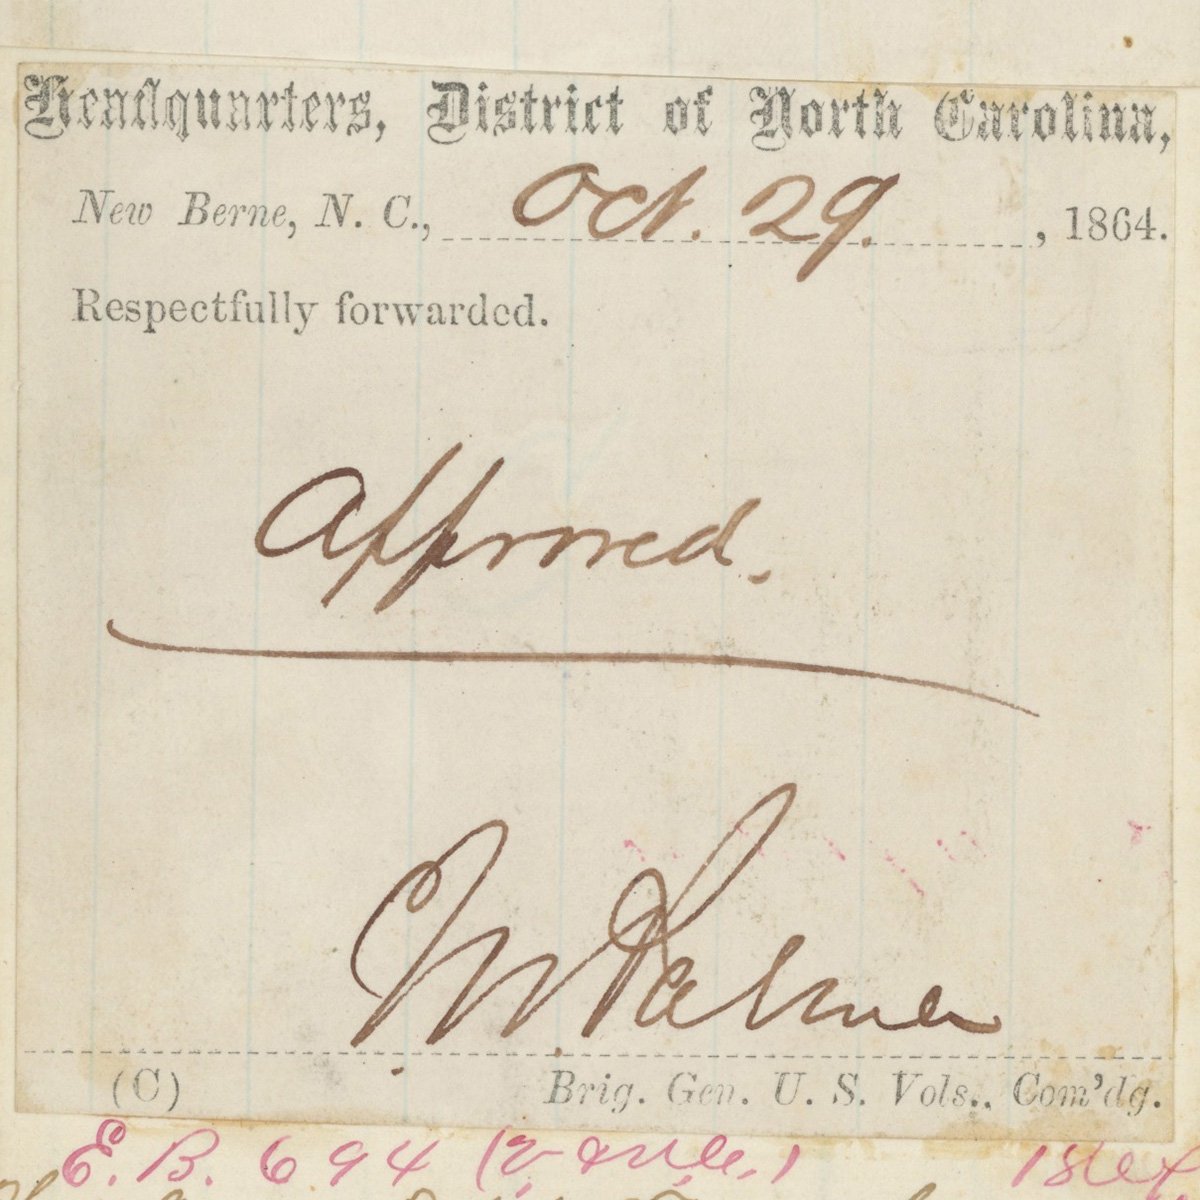 Headquarters, District of North Carolina,
New Berne, N. C., Oct. 29. , 1864.
Respectfully forwarded.
Approved.
Palmer
(C) Brig. Gen. U. S. Vols., Com'dg.
E. B. 694 1864